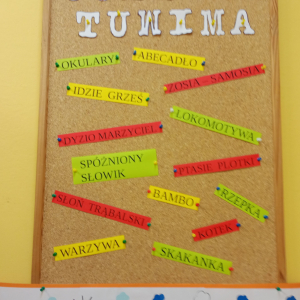 TUWIMA
OKULARY
ABECADŁO
ZOSIA - SAMOSIA
IDZIE GRZEŚ
LOKOMOTYWA
DYZIO MARZYCIEL
SPÓŹNIONY
SŁOWIK
PTASIE PLOTKI
SŁOŃ TRĄBALSKI
BAMBO
RZEPKA
KOTEK
WARZYWA
SKAKANKA